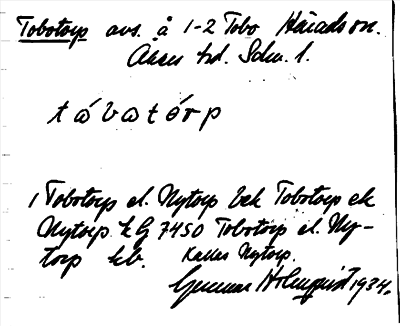 Tobotorp avs. å 1-2 Tobo Häradsrn.
Asker hd. Sdm. l.
tábatórp
1 Tobotorp el. Nytorp bek Tobotorp ek
Nytorp kG 7450 Tobotorp el. Ny-
torp kb. Kallas Nytorp.
Gunnar Holmquist 1934.